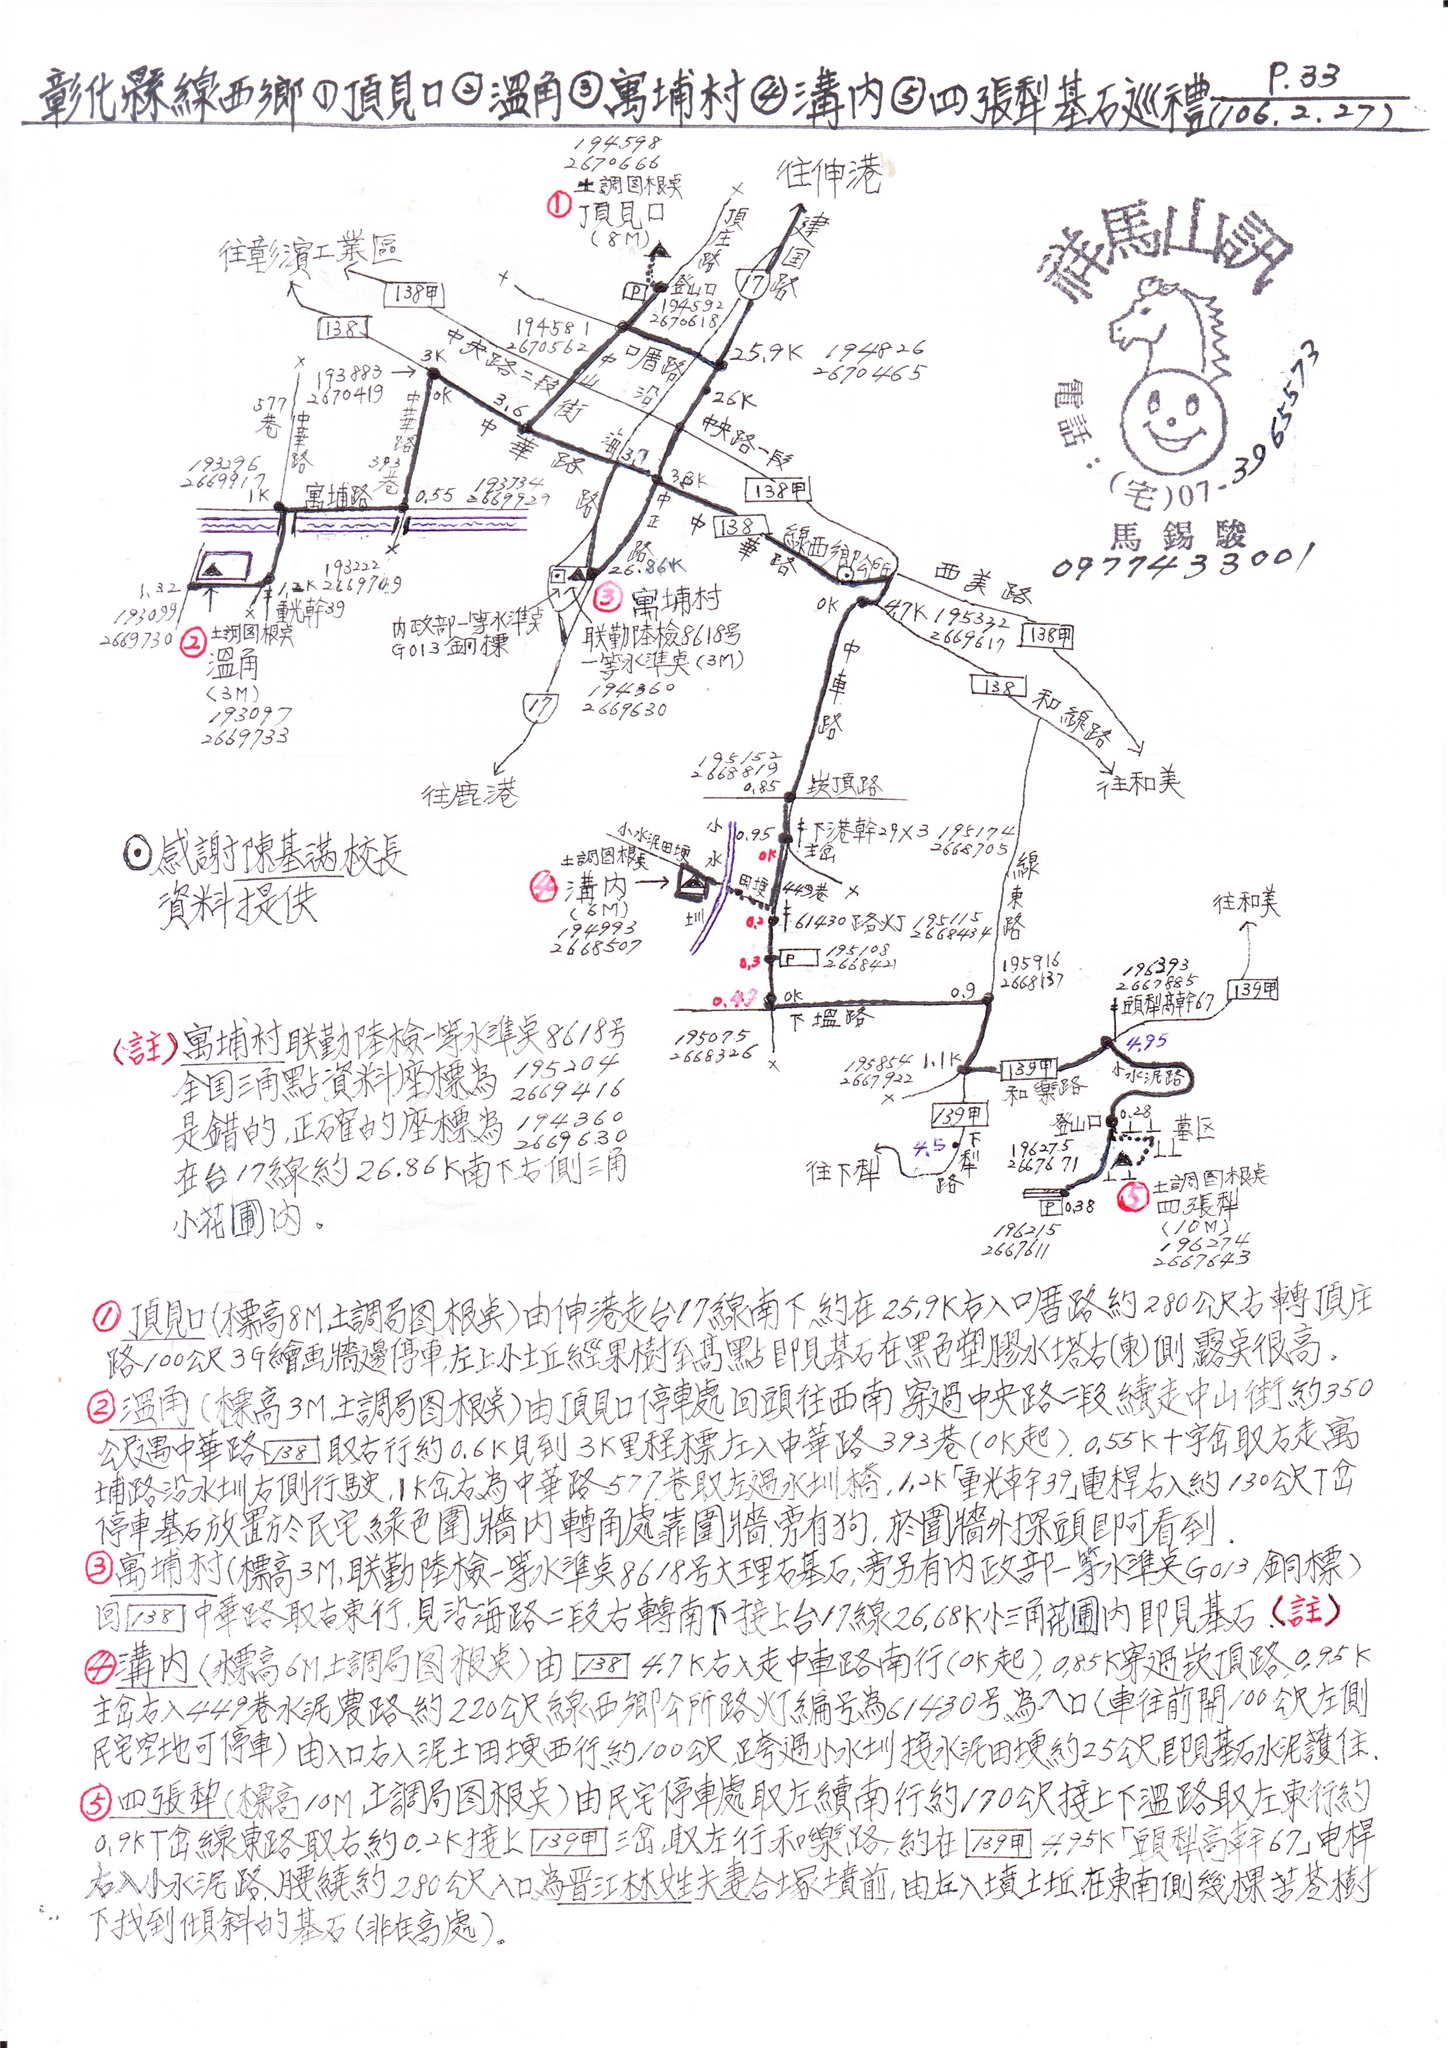 彰化縣線西鄉①頂見口②溫角③寓埔村④溝內⑤四張犁基石巡禮
P.33
(106.2.27)
194598
2670666
土調图根桌
① 頂見口
(8M)
往伸港
頂庄路
建国路
17
往彰濱工業區
138甲
138
P
登山口
194592
2670618
194581
2670562
口厝路
25.9K
194826
2670465
26K
中央路二段
中山街
沿海路
中央路一段
138甲
3K
0K
193883
2670419
577巷
中華路
中華路
393巷
3.6
中華路
3.7
3.8K
中正路
138
中華路
193296
2669917
1K
寓埔路
0.55
193734
2669929
1.32
193099
2669730
1.2K
193222
2669749
重光幹39
② 土調图根桌
溫角
(3M)
193097
2669733
26.86K
內政部一等水準桌
G013銅標
③ 寓埔村
联勤陸檢8618号
一等水準桌(3M)
194360
2669630
17
往鹿港
線西鄉公所
西美路
0K
4.7K
195332
2669617
138甲
138
和線路
往和美
中車路
195152
2668819
0.85
崁頂路
0.95
0K
下港幹29X3
主岔
195174
2668705
小水泥田埂
小水圳
土調图根桌
④ 溝內
(6M)
194993
2668507
田埂
449巷
0.2
61430路灯
195115
2668434
0.3
P
195108
2668421
0.47
0K
下塭路
0.9
195075
2668326
線東路
195916
2668137
195854
2667922
1.1K
139甲
和樂路
139甲
4.5
下犁路
往下犁
往和美
139甲
196393
2667885
頭犁高幹67
4.95
小水泥路
登山口
0.28
墓区
196275
2667671
P
0.38
196215
2667611
⑤ 土調图根桌
四張犁
(10M)
196274
2667643
群馬山訊
電話:
(宅)07-3965573
馬錫駿
0977433001
⊙感謝陳基滿校長
資料提供
(註)寓埔村联勤陸檢一等水準桌8618号
全国三角點資料座標為 195204
2669416
是錯的,正確的座標為 194360
2669630
在台17線約26.86K南下右側三角
小花圃內。
①頂見口(標高8M,土調局图根桌)由伸港走台17線南下約在25.9K右入口厝路約280公尺右轉頂庄
路100公尺3G繪画牆邊停車,左上小土丘經果樹至高點即見基石在黑色塑膠水塔右(東)側露桌很高。
②溫角(標高3M,土調局图根桌)由頂見口停車處回頭往西南穿過中央路二段續走中山街約350
公尺遇中華路138取右行約0.6K見到3K里程標左入中華路393巷(0K起),0.55K十字岔取右走寓
埔路沿水圳右側行駛,1K岔右為中華路577巷取左過水圳橋,1.2K「重光幹39」電桿右入約130公尺T岔
停車基石放置於民宅綠色圍牆內轉角處靠圍牆,旁有狗,於圍牆外探頭即可看到.
③寓埔村(標高3M,联勤陸檢一等水準桌8618号大理石基石,旁另有內政部一等水準桌G013銅標)
回138中華路取右東行,見沿海路二段右轉南下接上台17線26.68K小三角花圃內即見基石(註)
④溝內(標高6M,土調局图根桌)由138 4.7K右入走中車路南行(0K起),0.85K穿過崁頂路,0.95K
主岔右入449巷水泥農路約220公尺線西鄉公所路灯編号為61430号為入口(車往前開100公尺左側
民宅空地可停車)由入口右入泥土田埂西行約100公尺,跨過小水圳接水泥田埂約25公尺即見基石水泥護住.
⑤四張犁(標高10M,土調局图根桌)由民宅停車處取左續南行約170公尺接上下塭路取左東行約
0.9KT岔線東路取右約0.2K接上139甲三岔,取左行和樂路,約在139甲 4.95K「頭犁高幹67」电桿
右入小水泥路,腰繞約280公尺入口為晋江林姓夫妻合塚墳前,由左入墳土坵,在東南側幾棵苦苓樹
下找到傾斜的基石(非在高處)。